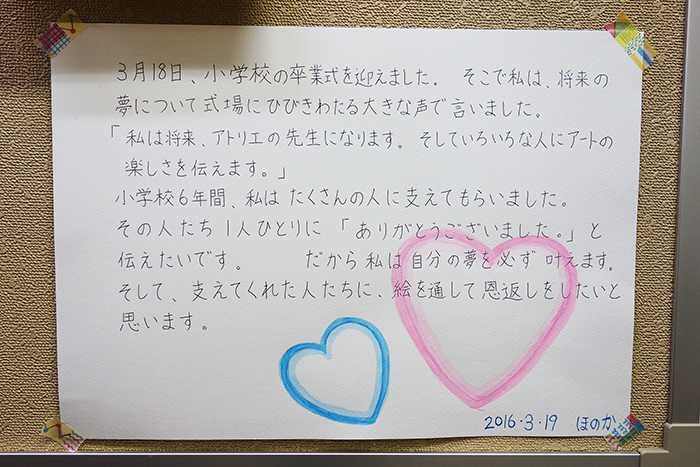 3月18日、小学校の卒業式を迎えました。 そこで私は、将来の
夢について式場にひびきわたる大きな声で言いました。
「私は将来、アトリエの先生になります。そしていろいろな人にアートの
楽しさを伝えます。」
小学校6年間、私はたくさんの人に支えてもらいました。
その人たち1人ひとりに「ありがとうございました。」と
伝えたいです。 だから私は自分の夢を必ず叶えます。
そして、支えてくれた人たちに、絵を通して恩返しをしたいと
思います。
2016・3・19 ほのか